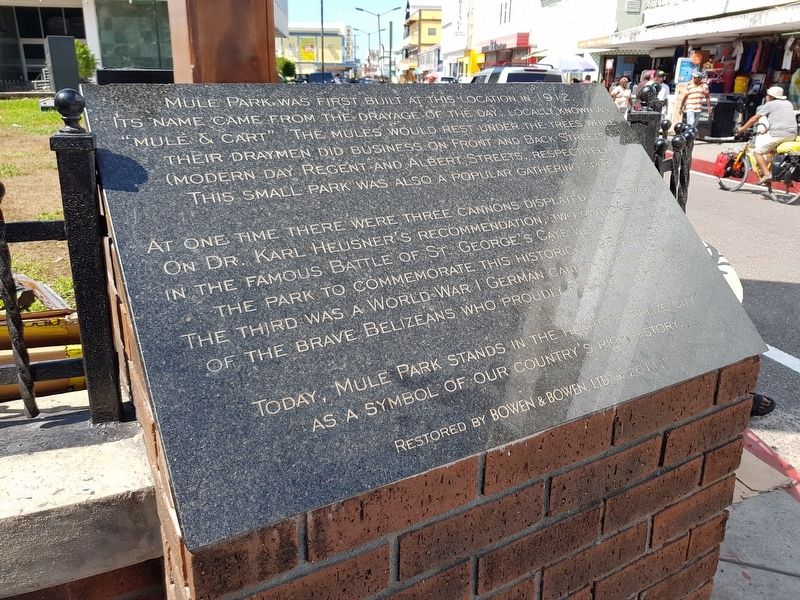 MULE PARK WAS FIRST BUILT AT THIS LOCATION IN 1912.
ITS NAME CAME FROM THE DRAYAGE OF THE DAY, LOCALLY KNOWN
"MULE & CART". THE MULES WOULD REST UNDER THE TREES
THEIR DRAYMEN DID BUSINESS ON FRONT AND BACK STREETS
(MODERN DAY REGENT AND ALBERT STREETS, RESPECTIVELY).
THIS SMALL PARK WAS ALSO A POPULAR GATHERING
AT ONE TIME THERE WERE THREE CANNONS DISPLAYED
ON DR. KARL HEUSNER'S RECOMMENDATION, TWO
IN THE FAMOUS BATTLE OF ST. GEORGE'S CAYE
THE PARK TO COMMEMORATE THIS HISTORIC
THE THIRD WAS A WORLD WAR I GERMAN
OF THE BRAVE BELIZEANS WHO PROUDLY
TODAY, MULE PARK STANDS IN THE HEART OF BELIZE CITY
AS A SYMBOL OF OUR COUNTRY'S RICH HISTORY.
RESTORED BY BOWEN & BOWEN, LTD. IN 2011